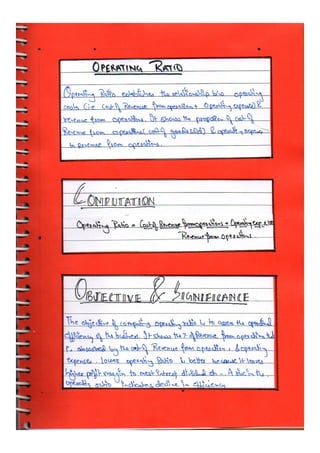 OPERATING RATIO
Operating Ratio establishes the relationship b/w operating
costs (i.e. cost of Revenue from operations + Operating expenses) &
revenue from operations. It shows the proportion of cost of
Revenue from operations (cost of goods sold) & operating expenses
to revenue from operations.
COMPUTATION
Operating Ratio = Cost of Revenue from operations + Operating Exp. x 100
Revenue from Operations
OBJECTIVE & SIGNIFICANCE
The objective of computing operating ratio is to assess the operational
efficiency of the business. It shows the % of Revenue from operations that
is absorbed by the cost of Revenue from operation & operating
expenses. lower operating Ratio is better because it leaves
higher profit margin to meet interest, dividend etc. A rise in the
operating ratio indicates decline in efficiency